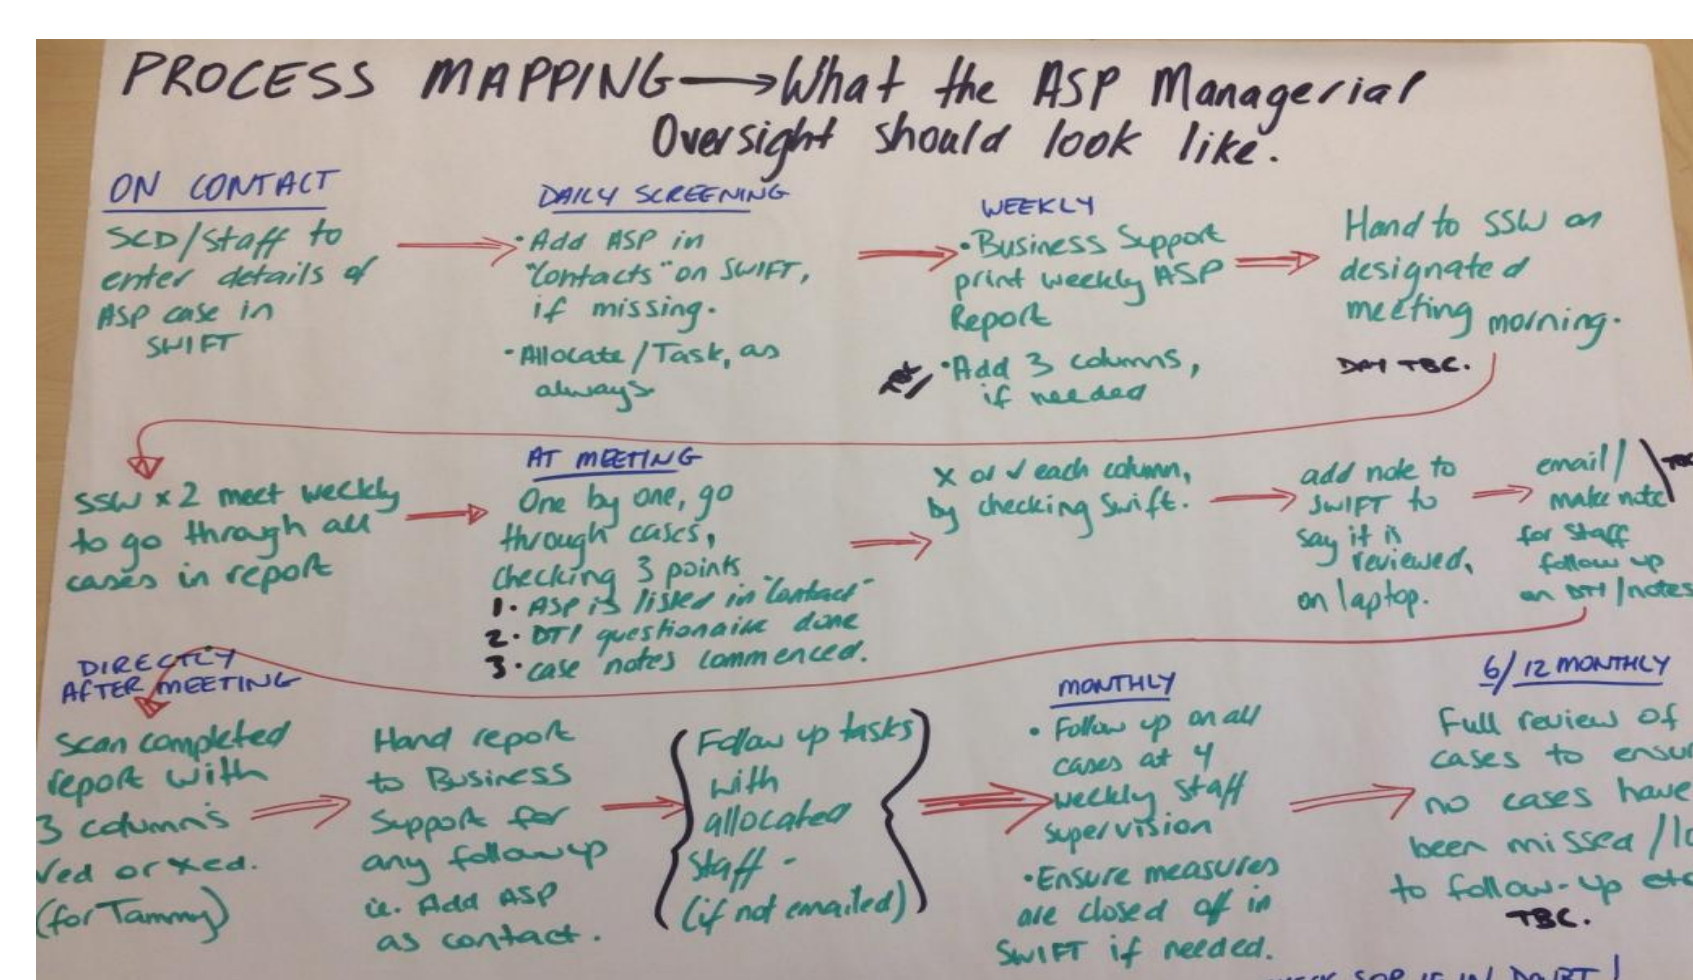 PROCESS MAPPING → What the ASP Managerial
Oversight should look like.
ON CONTACT
SCD/Staff to
enter details of
ASP case in
SWIFT
DAILY SCREENING
• Add ASP in
"Contacts" on SWIFT,
if missing.
• Allocate/Task, as
always.
WEEKLY
• Business Support
print weekly ASP
Report
• Add 3 columns,
if needed
Hand to SSW on
designated
meeting morning.
DAY TBC.
SSW x 2 meet weekly
to go through all
cases in report
AT MEETING
One by one, go
through cases,
checking 3 points
1. ASP is listed in "Contact"
2. DTI questionaire done
3. case notes commenced.
X or ✓ each column,
by checking Swift.
add note to
SWIFT to
say it is
reviewed,
on laptop.
email/
make note
for staff
follow up
on DTI/notes
DIRECTLY
AFTER MEETING
Scan completed
report with
3 columns
✓ed or xed.
(for Tammy)
Hand report
to Business
Support for
any followup
ie. Add ASP
as contact.
Follow up tasks
with
allocated
staff -
(if not emailed)
MONTHLY
• Follow up on all
cases at 4
weekly staff
supervision
• Ensure measures
are closed off in
SWIFT if needed.
6/12 MONTHLY
Full review of
cases to
no cases have
been missed/
to follow-up etc
TBC.
SOP IF IN DOUBT!